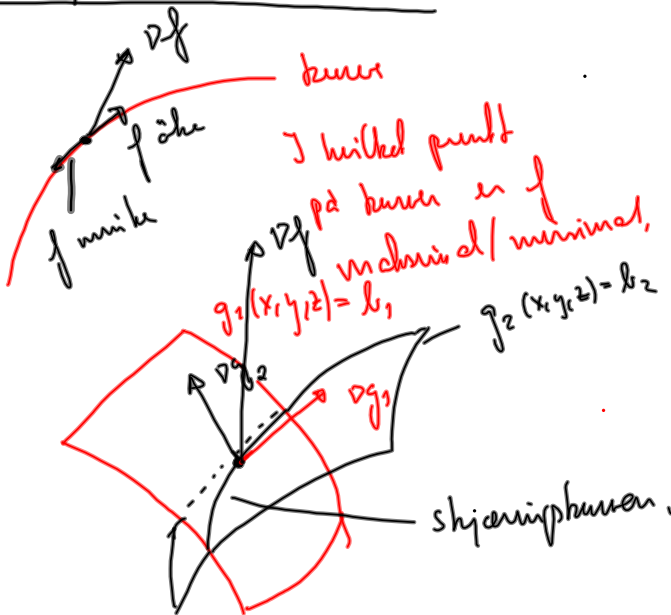 ∇f
kurve
f øke
f minke
I hvilket punkt
på kurven er f
maksimal/minimal.
∇f
g₁(x,y,z) = b₁
g₂(x,y,z) = b₂
∇g₂
∇g₁
skjæringskurven.